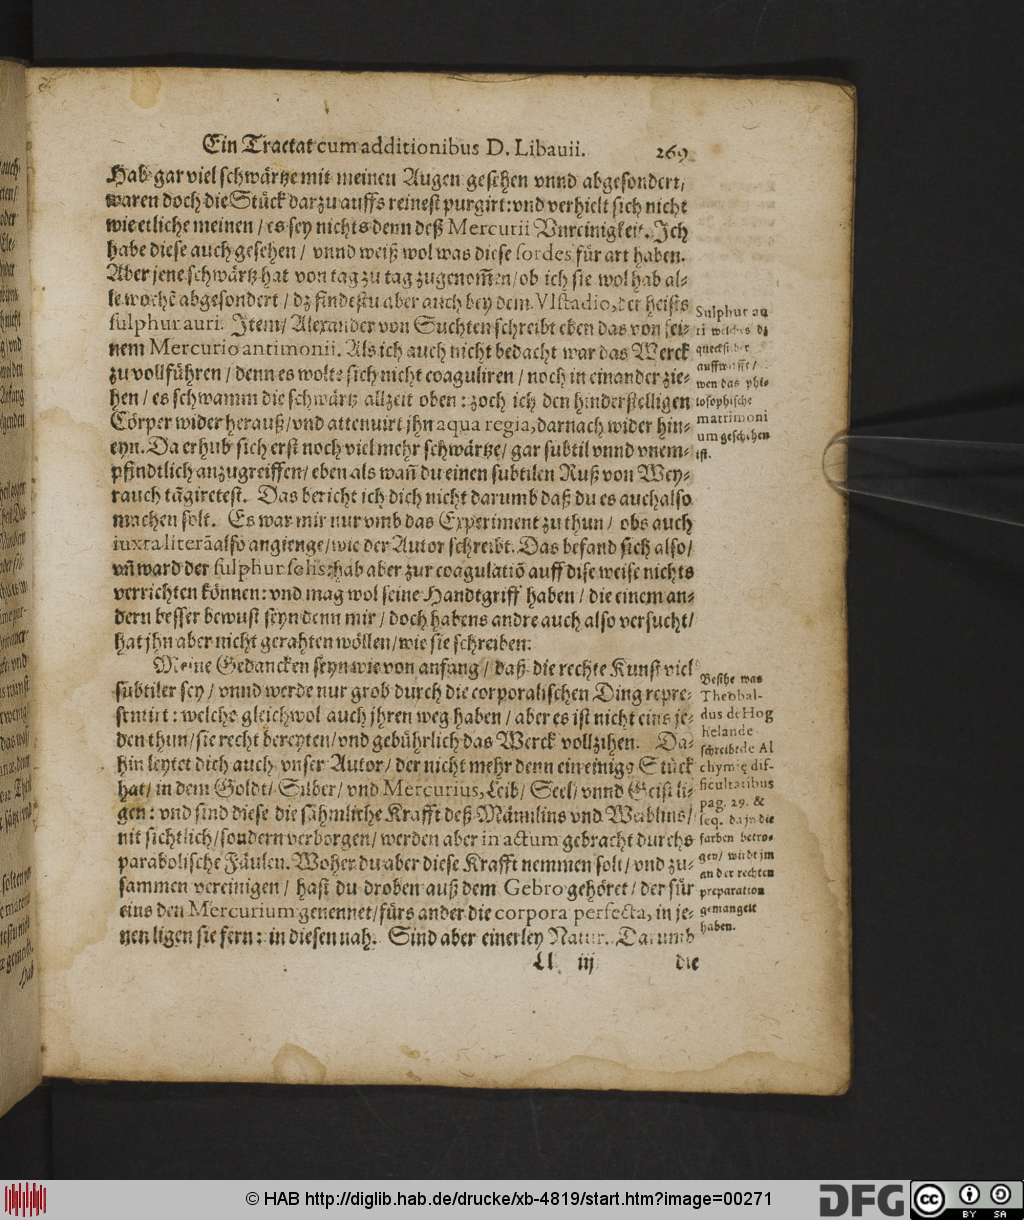 Ein Tractat cum additionibus D. Libauii. 269
Hab gar viel schwärtze mit meinen Augen gesehen vnnd abgesondert/
waren doch die Stück darzu auffs reinest purgirt: vnd verhielt sich nicht
wie etliche meinen / es sey nichts denn deß Mercurii Vnreinigkeit. Ich
habe diese auch gesehen / vnnd weiß wol was diese sordes für art haben.
Aber jene schwärtz hat von tag zu tag zugenom̃en/ ob ich sie wol hab al-
le wochẽ abgesondert / dz findestu aber auch bey dem Vlstadio, der heists
sulphur auri. Item/ Alexander von Suchten schreibt eben das von sei-
nem Mercurio antimonii. Als ich auch nicht bedacht war das Werck
zu vollführen / denn es wolte sich nicht coaguliren / noch in einander zie-
hen / es schwamm die schwärtz allzeit oben : zoch ich den hinderstelligen
Cörper wider herauß/ vnd attenuirt jhn aqua regia, darnach wider hin-
eyn. Da erhub sich erst noch viel mehr schwärtze/ gar subtil vnnd vnem-
pfindtlich anzugreiffen/ eben als wañ du einen subtilen Ruß von Wey-
rauch tãgiretest. Das bericht ich dich nicht darumb daß du es auch also
machen solt. Es war mir nur vmb das Experiment zu thun / obs auch
iuxta literã also angienge/ wie der Autor schreibt. Das befand sich also/
vñ ward der sulphur solis: hab aber zur coagulatiõ auff dise weise nichts
verrichten können: vnd mag wol seine Handtgriff haben / die einem an-
dern besser bewust seyn denn mir / doch habens andre auch also versucht/
hat jhn aber nicht gerahten wöllen/ wie sie schreiben.
Meine Gedancken seyn wie von anfang / daß die rechte Kunst viel
subtiler sey / vnnd werde nur grob durch die corporalischen Ding repre-
sentirt : welche gleichwol auch jhren weg haben / aber es ist nicht eins je-
den thun/ sie recht bereyten/ vnd gebührlich das Werck vollzihen. Da-
hin leytet dich auch vnser Autor/ der nicht mehr denn ein einige Stück
hat/ in dem Goldt/ Silber/ vnd Mercurius, Leib/ Seel/ vnnd Geist li-
gen : vnd sind diese die sähmliche Krafft deß Männlins vnd Weiblins/
nit sichtlich/ sondern verborgen/ werden aber in actum gebracht durchs
parabolische Fäulen. Woher du aber diese Krafft nemmen solt/ vnd zu-
sammen vereinigen / hast du droben auß dem Gebro gehöret/ der für
eins den Mercurium genennet/ fürs ander die corpora perfecta, in je-
nen ligen sie fern : in diesen nah. Sind aber einerley Natur. Darumb
Ll iij die
Sulphur au
ri welches dz
quecksilber
auffwirfft/
wen das phi-
losophische
matrimoni
um geschehen
ist.
Besihe was
Theobal-
dus de Hog
helande
schreibt de Al
chymię dif-
ficultatibus
pag. 29. &
seq. da jn die
farben betro-
gen/ wirdt jm
an der rechten
preparation
gemangelt
haben.
© HAB http://diglib.hab.de/drucke/xb-4819/start.htm?image=00271
DFG
cc BY SA